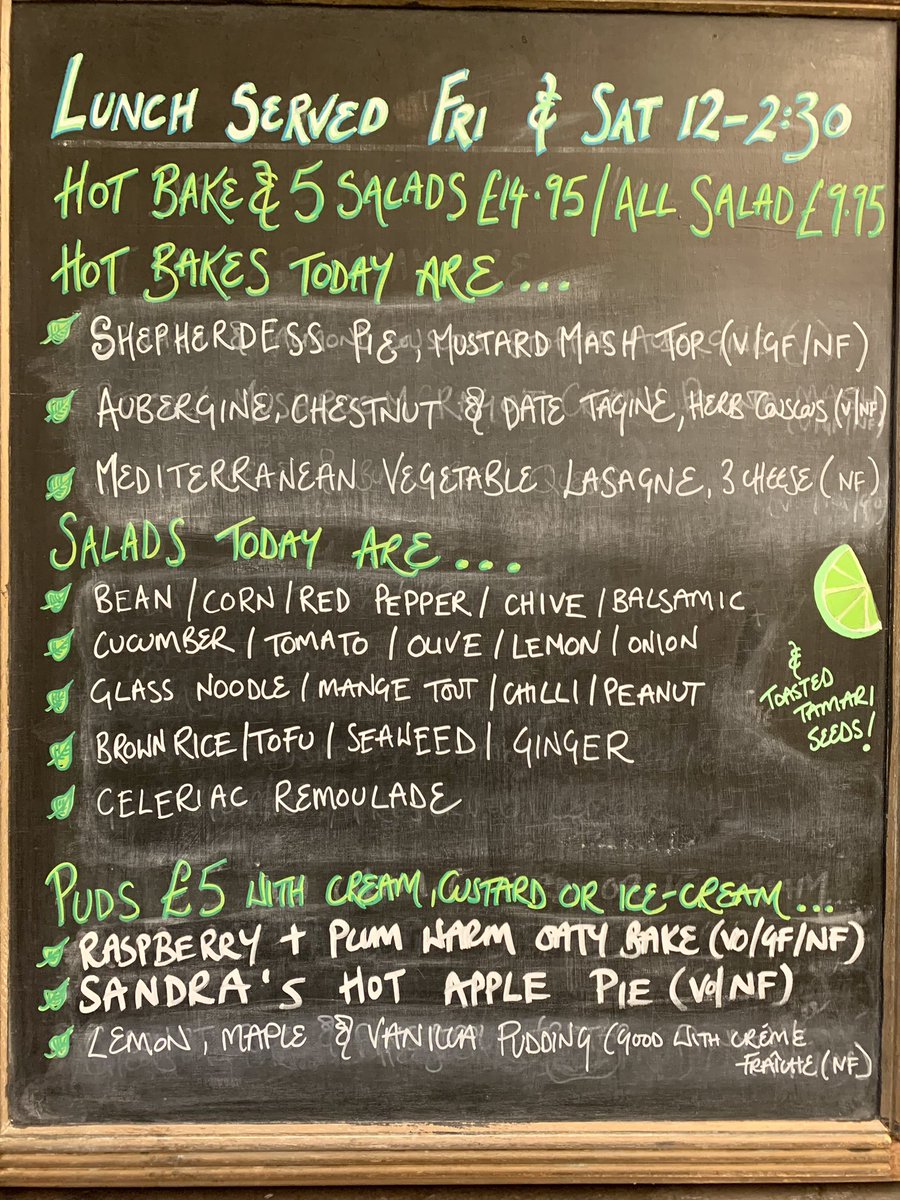 LUNCH SERVED FRI & SAT 12-2:30
HOT BAKE & 5 SALADS £14.95/ALL SALAD £9.95
HOT BAKES TODAY ARE...
SHEPHERDESS PIE, MUSTARD MASH TOP (V/GF/NF)
AUBERGINE, CHESTNUT & DATE TAGINE, HERB COUSCOUS (V/NF)
MEDITERRANEAN VEGETABLE LASAGNE, 3 CHEESE (NF)
SALADS TODAY ARE...
BEAN/CORN/RED PEPPER/CHIVE/BALSAMIC
CUCUMBER/TOMATO/OLIVE/LEMON/ONION
GLASS NOODLE/MANGE TOUT/CHILLI/PEANUT
BROWN RICE/TOFU/SEAWEED/GINGER
CELERIAC REMOULADE
& TOASTED
TAMARI
SEEDS!
PUDS £5 WITH CREAM, CUSTARD OR ICE-CREAM...
RASPBERRY + PLUM WARM OATY BAKE (VO/GF/NF)
SANDRA'S HOT APPLE PIE (VO/NF)
LEMON, MAPLE & VANILLA PUDDING (GOOD WITH CRÉME
FRAÎCHE (NF)